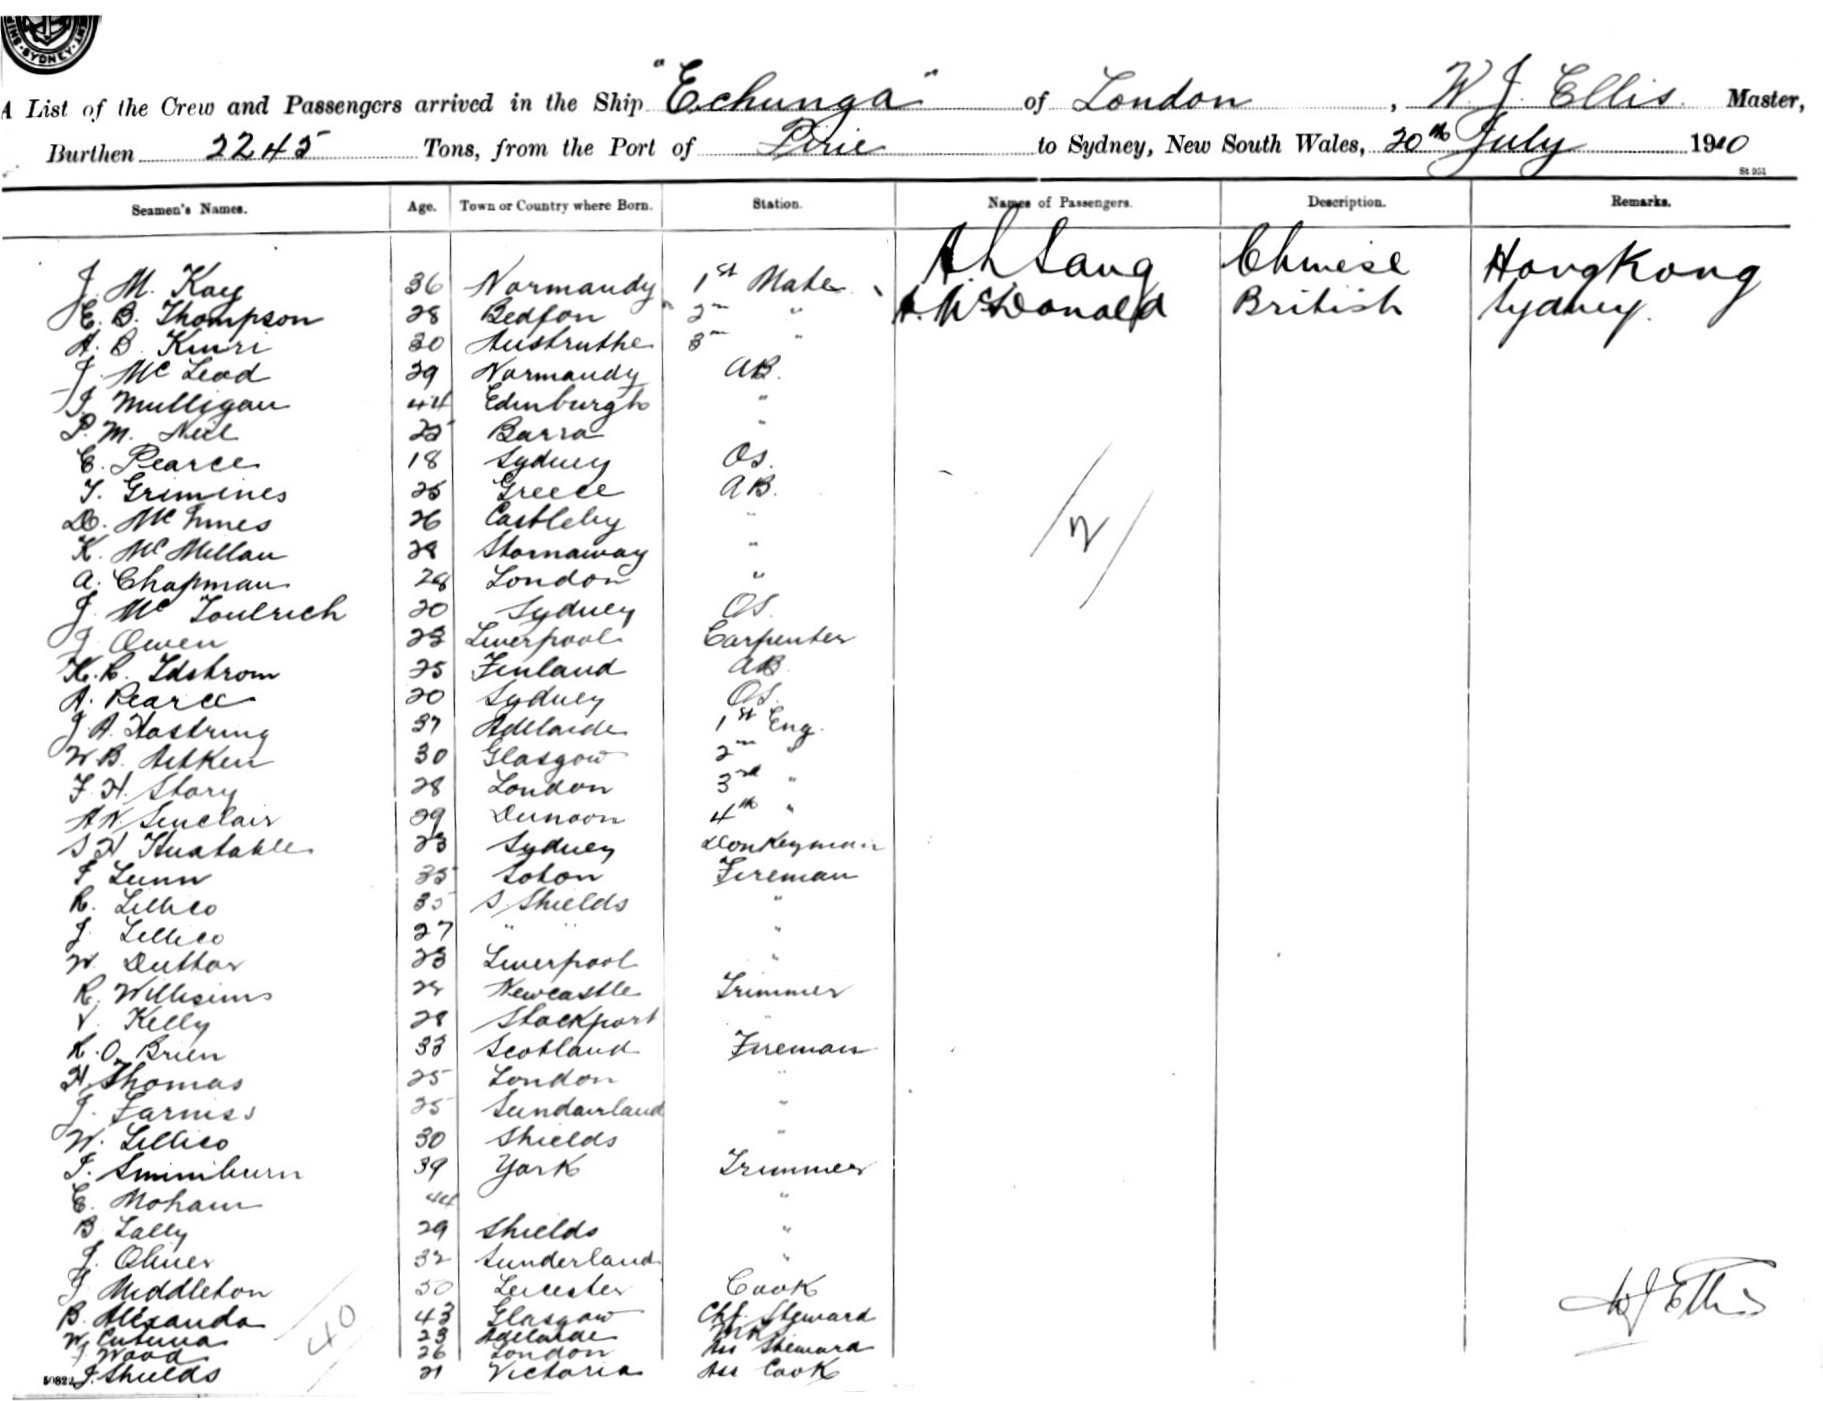 SYDNEY
A List of the Crew and Passengers arrived in the Ship "Echunga" of London, W. J. Ellis Master,
Burthen 2245 Tons, from the Port of Pirie to Sydney, New South Wales, 20th July 1910
St 951
Seamen's Names. Age. Town or Country where Born. Station. Names of Passengers. Description. Remarks.
J. M. Kay 36 Normandy 1st Mate Ah Sang Chinese HongKong
E. B. Thompson 28 Bedfon 2nd " A. McDonald British Sydney.
A. B. 30 Austruthe 3rd "
J. Mc Leod 29 Normandy AB.
J. Mulligan 44 Edinburgh "
P. M. Neil 25 Barra "
E. Pearce 18 Sydney OS.
T. Grimines 25 Greece AB.
D. Mc Innes 26 Castleby "
K. Mc Millan 28 Stornaway "
A. Chapman 28 London "
J. Mc Toulrich 20 Sydney OS.
J. Owen 28 Liverpool Carpenter
K. R. Idstrom 25 Finland AB.
A. Pearce 20 Sydney OS.
J. A. Hastring 37 Adelaide 1st Eng.
W B. Aitken 30 Glasgow 2nd "
F. H. Story 28 London 3rd "
A N. Sinclair 29 Dunoon 4th "
S H Huxtable 23 Sydney Donkeyman
F Lunn 35 Soton Fireman
R. Lillico 35 S Shields "
J. Lillico 27 " " "
W. Duttar 23 Liverpool "
R. Williams 28 Newcastle Trimmer
V. Kelly 28 Stockport "
R. O. Brien 33 Scotland Fireman
H. Thomas 25 London "
J. Farniss 25 Sundairland "
W. Lillico 30 Shields "
T. Sminiburn 39 York Trimmer
E. Moham 44 "
B. Lally 29 Shields "
J. Oliver 32 Sunderland "
J. Middleton 50 Leicester Cook
B. Alexanda 43 Glasgow Chf. Steward
W. 23 Adelaide
J. Wood 26 London Ass Steward
J. Shields 21 Victoria Ass Cook
2
40
W J Ellis